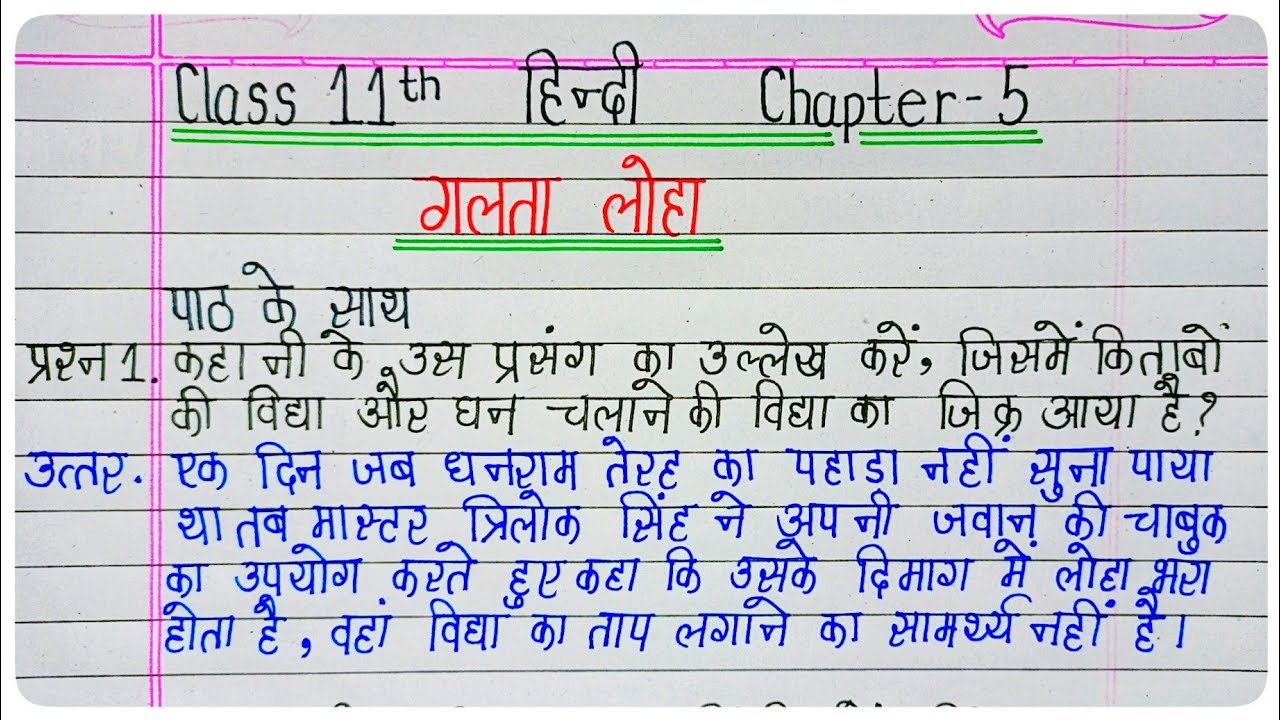 Class 11th हिन्दी Chapter-5
गलता लोहा
पाठ के साथ
प्रश्न1. कहानी के उस प्रसंग का उल्लेख करें, जिसमें किताबों
की विद्या और घन चलाने की विद्या का जिक्र आया है?
उत्तर. एक दिन जब धनराम तेरह का पहाडा नहीं सुना पाया
था तब मास्टर त्रिलोक सिंह ने अपनी जवान की चाबुक
का उपयोग करते हुए कहा कि उसके दिमाग में लोहा भरा
होता है, वहां विद्या का ताप लगाने का सामर्थ्य नहीं है।